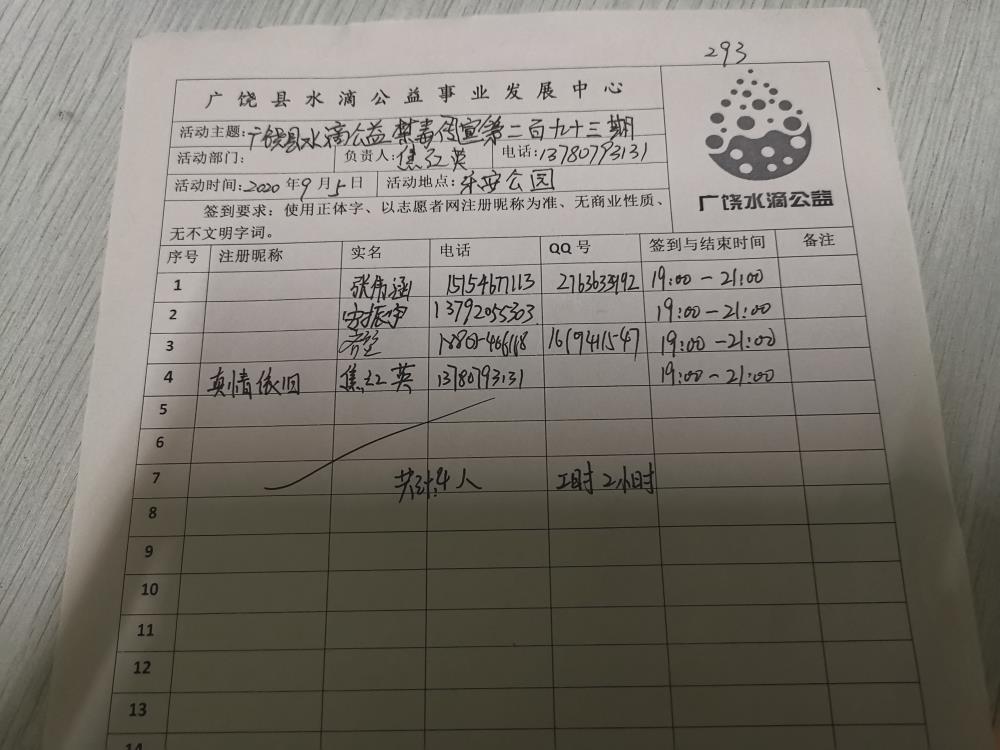 293
广饶县水滴公益事业发展中心
活动主题:广饶县水滴公益禁毒宣第二百九十三期
活动部门: 负责人:焦红英 电话:13780793131
活动时间:2020年9月5日 活动地点:乐安公园
广饶水滴公益
签到要求:使用正体字、以志愿者网注册昵称为准、无商业性质、
无不文明字词。
序号 注册昵称 实名 电话 QQ号 签到与结束时间 备注
1 张伟涵 15154677113 2763633192 19:00-21:00
2 13792055303 19:00-21:00
3 19:00-21:00
4 真情依旧 焦红英 13780793131 19:00-21:00
5
6
7 共计:4人 工时2小时
8
9
10
11
12
13
14